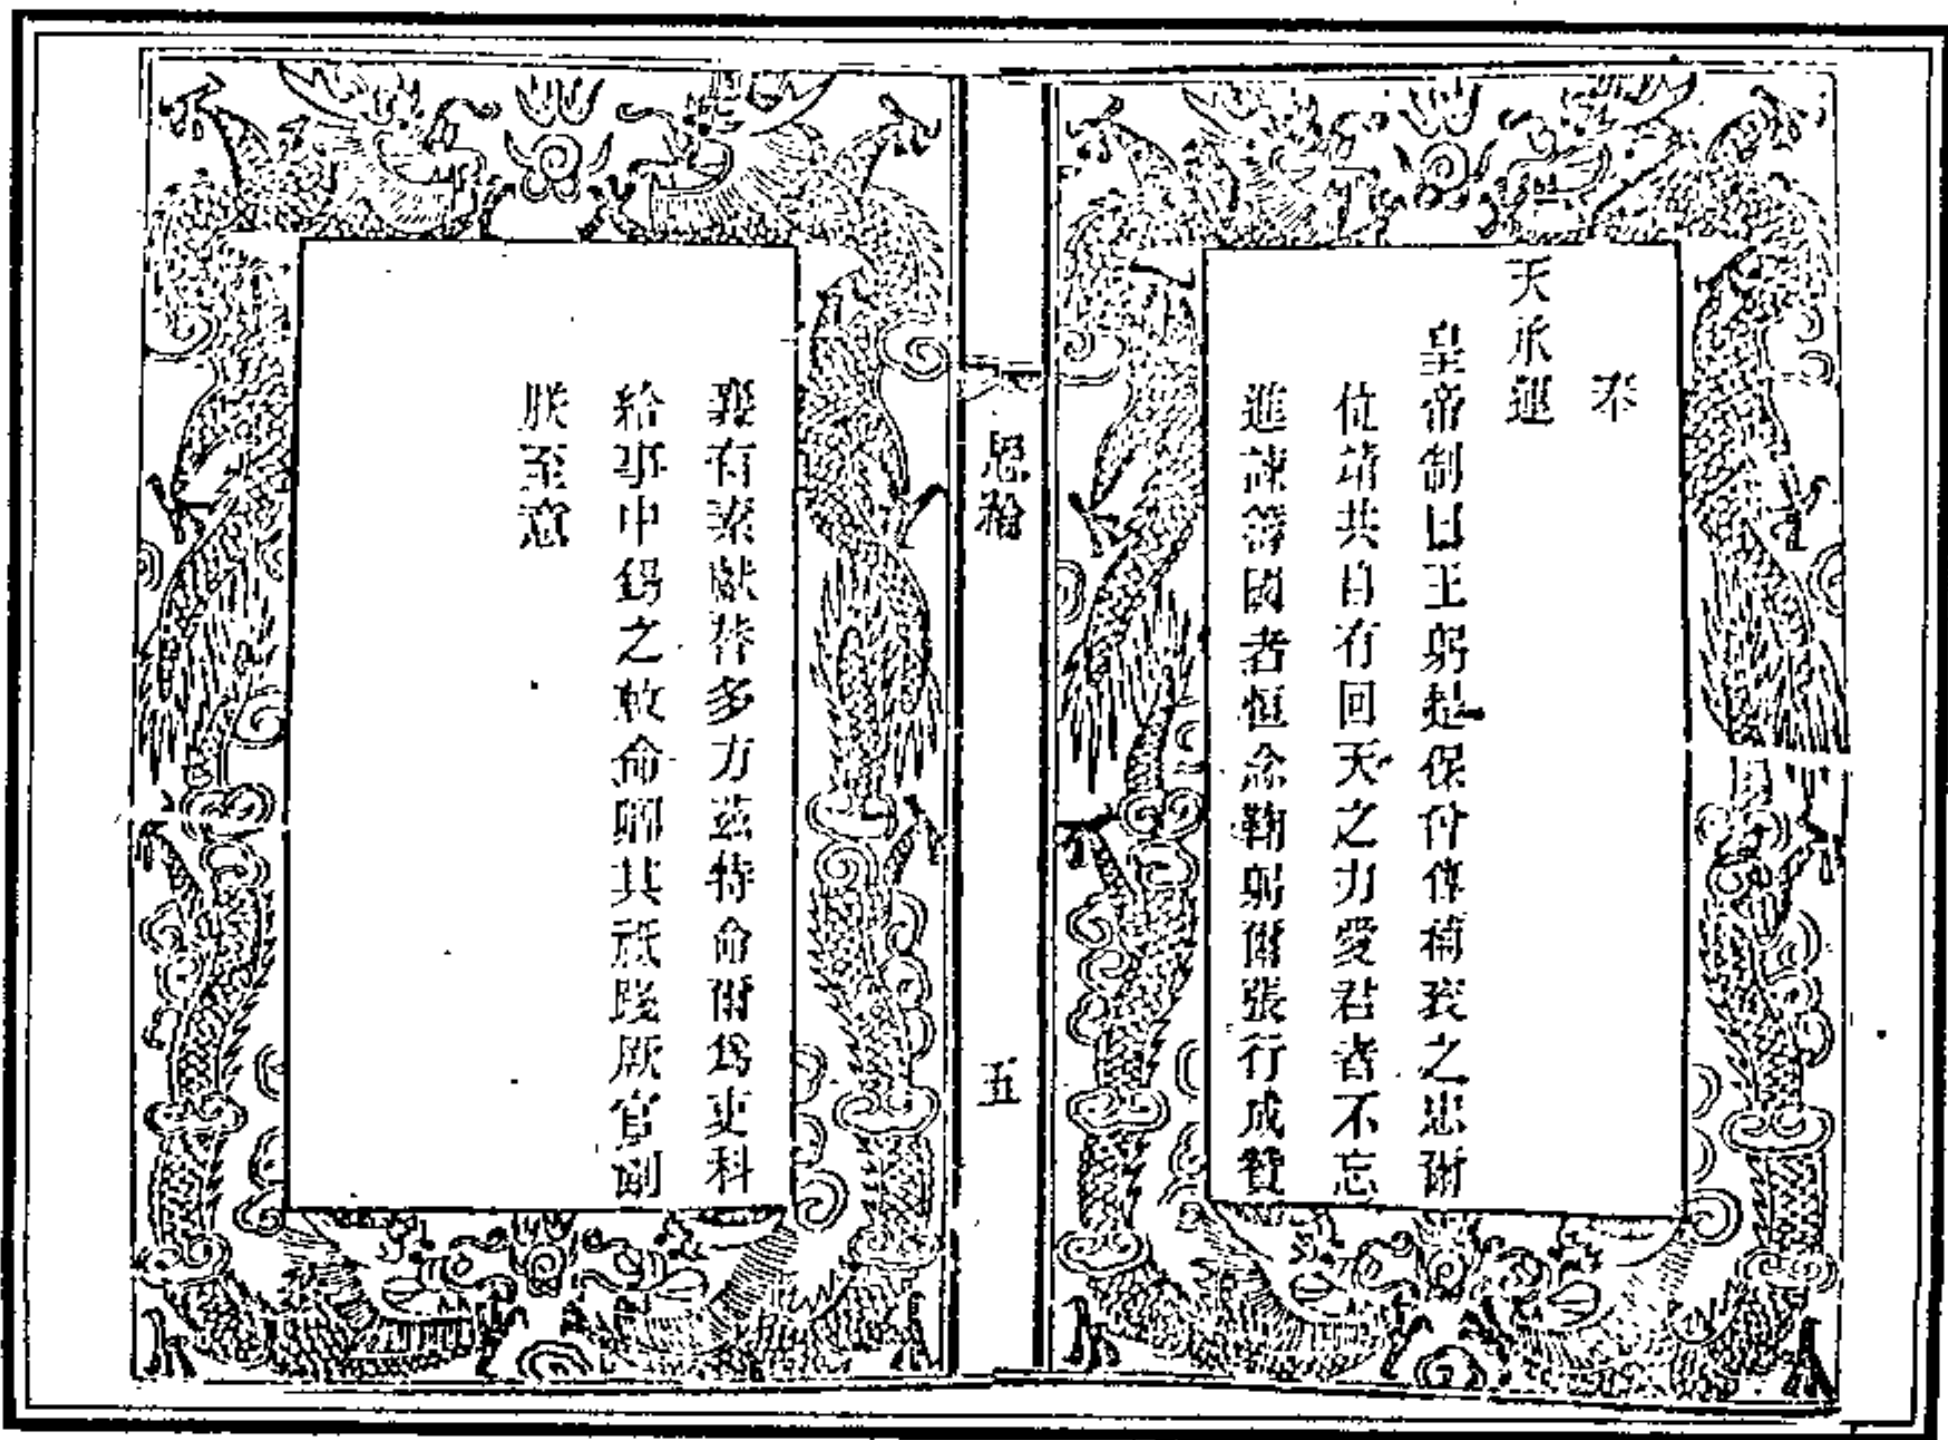 奉
天承運
皇帝制曰王躬是保得補袞之忠爾
位靖共自有回天之力愛君者不忘
進諫籌國者恒念鞠躬爾張行成贊
恩綸
五
襄有素獻替多力茲特命爾爲吏科
給事中錫之敕命爾其祗踐厥官副
朕至意